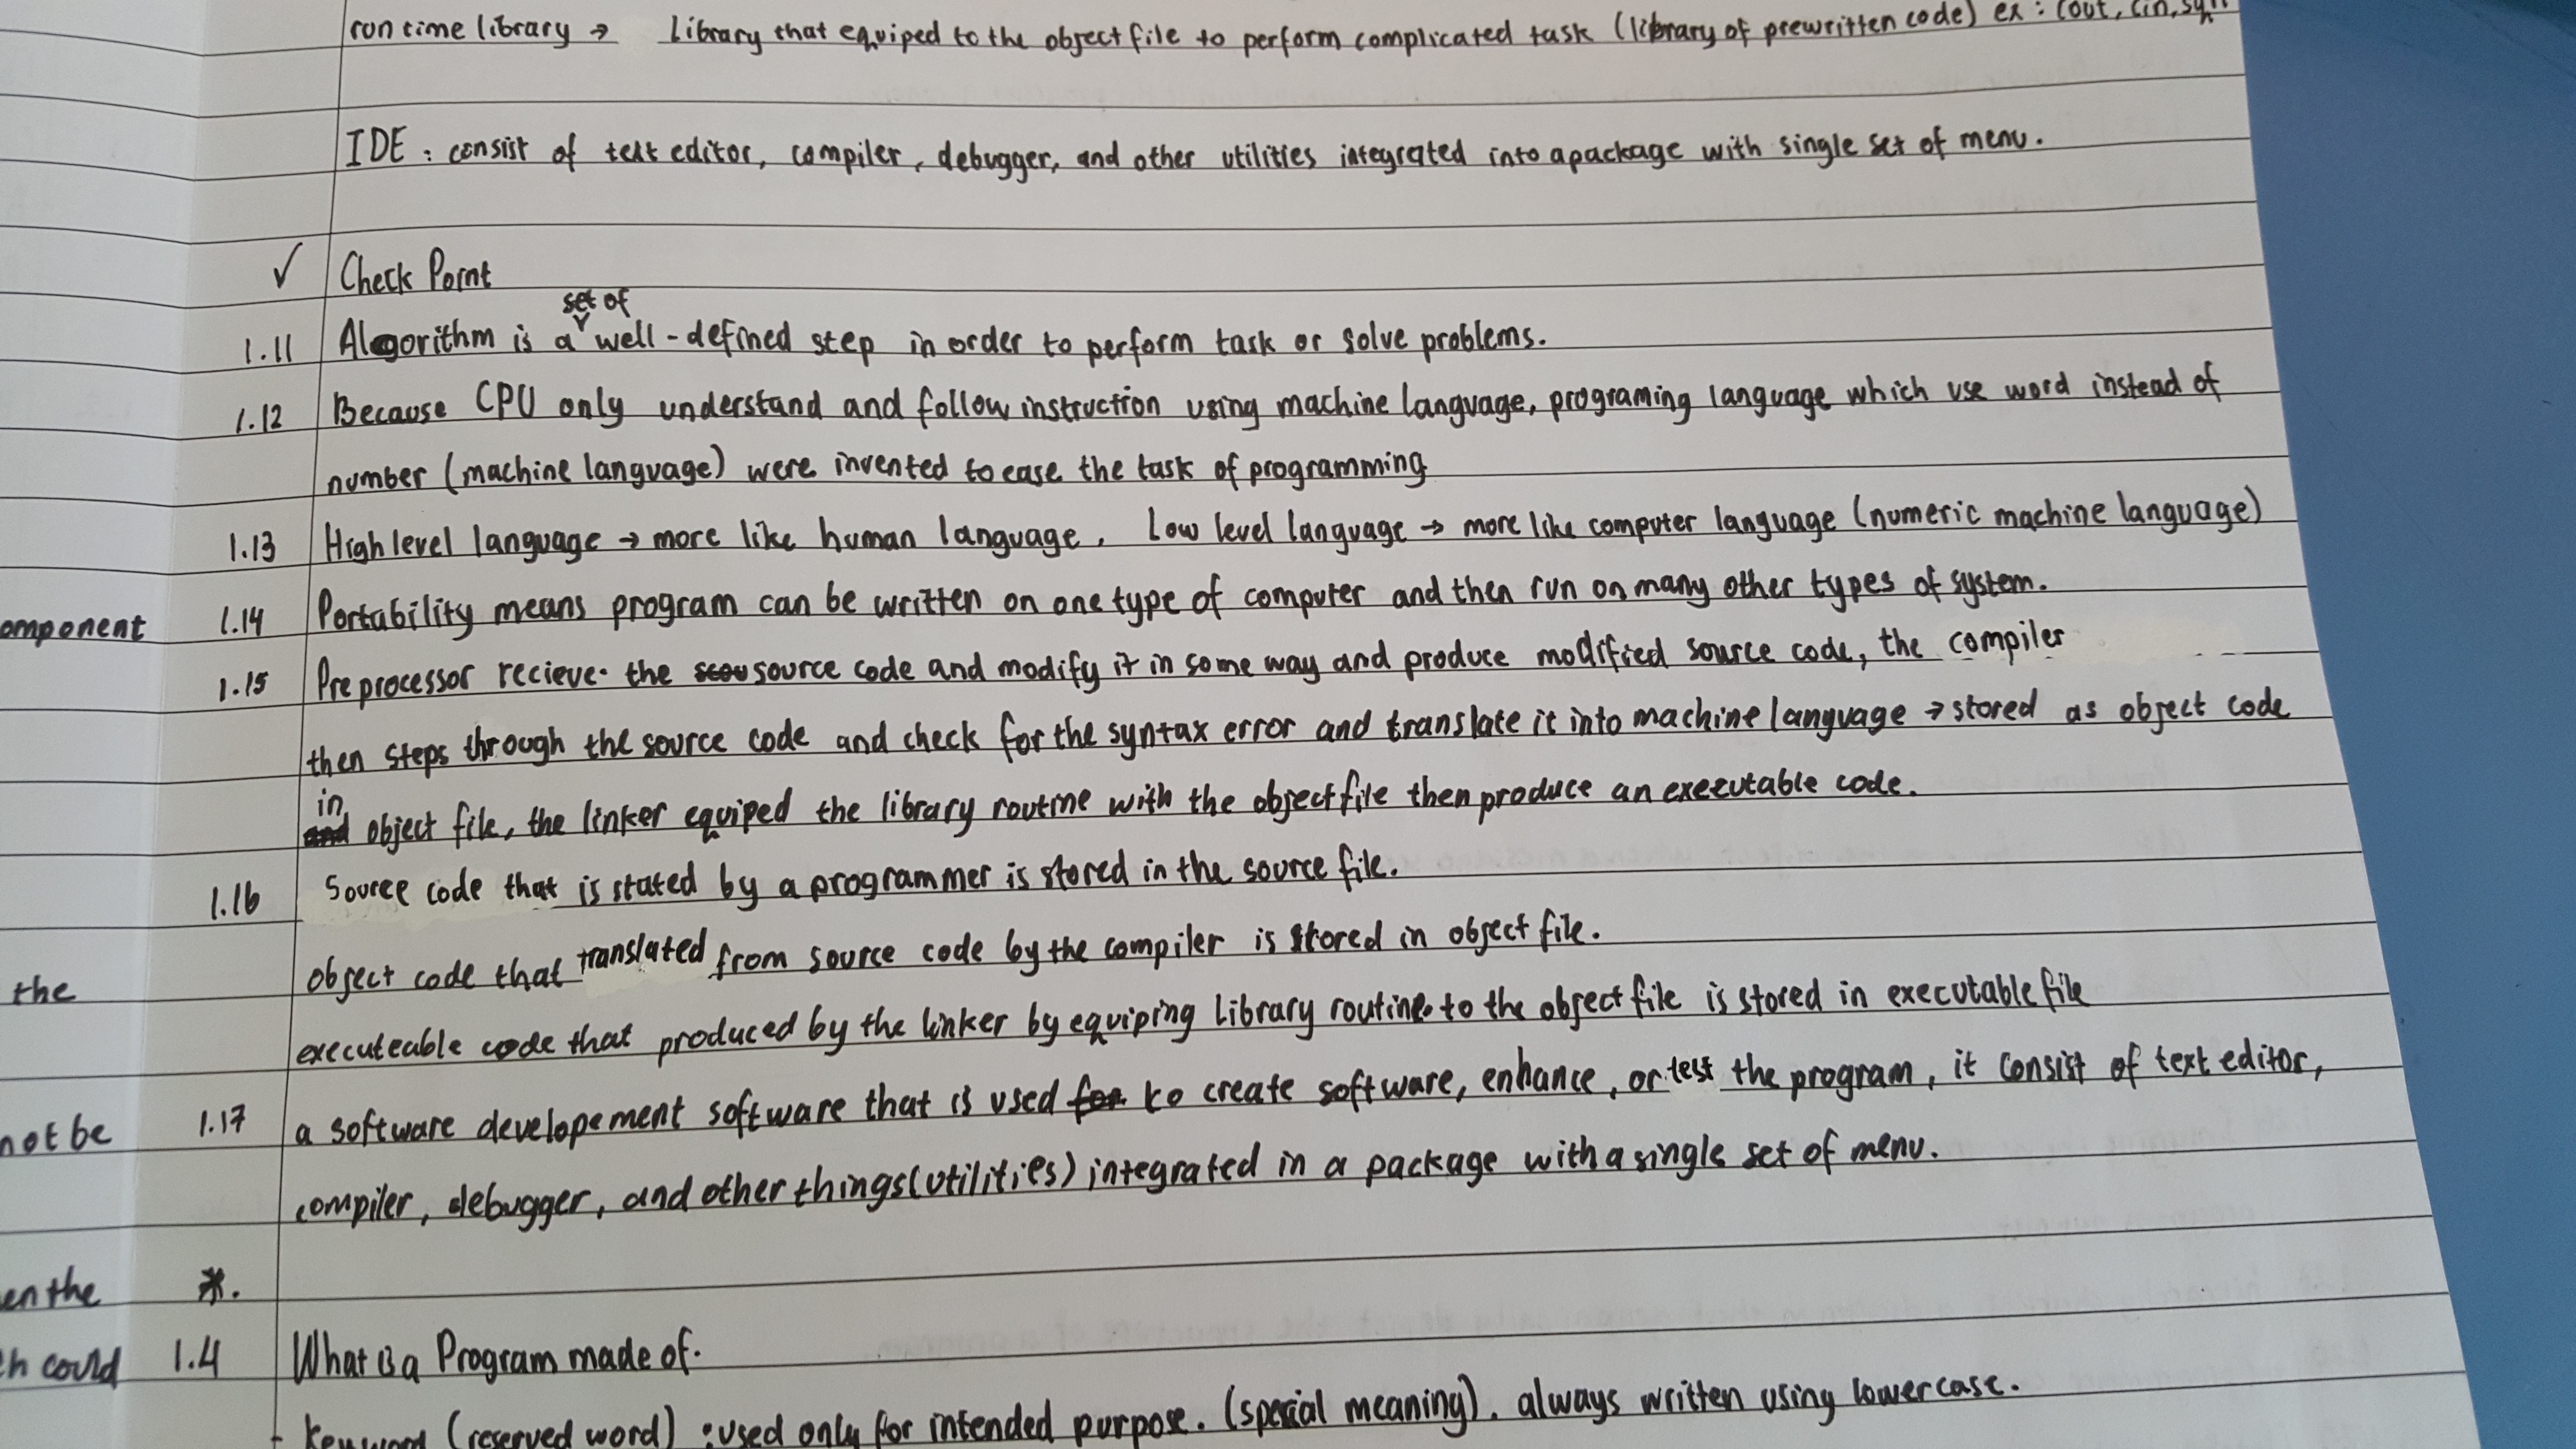 run time library → Library that equiped to the object file to perform complicated task (library of prewritten code) ex : cout, cin,
IDE : consist of text editor, compiler, debugger, and other utilities integrated into a package with single set of menu.
✓ Check Point
set of
1.11 Algorithm is a well-defined step in order to perform task or solve problems.
1.12 Because CPU only understand and follow instruction using machine language, programing language which use word instead of
number (machine language) were invented to ease the task of programming
1.13 High level language → more like human language. Low level language → more like computer language (numeric machine language)
omponent 1.14 Portability means program can be written on one type of computer and then run on many other types of system.
1.15 Preprocessor recieve the source code and modify it in some way and produce modified source code, the compiler
then steps through the source code and check for the syntax error and translate it into machine language → stored as object code
in object file, the linker equiped the library routine with the object file then produce an executable code.
1.16 Source code that is stated by a programmer is stored in the source file.
the object code that translated from source code by the compiler is stored in object file.
executeable code that produced by the linker by equiping library routine to the object file is stored in executable file
not be 1.17 a software developement software that is used for to create software, enhance, or test the program, it consist of text editor,
compiler, debugger, and other things (utilities) integrated in a package with a single set of menu.
en the *.
ch could 1.4 What is a Program made of.
- keyword (reserved word) : used only for intended purpose. (special meaning). always written using lowercase.